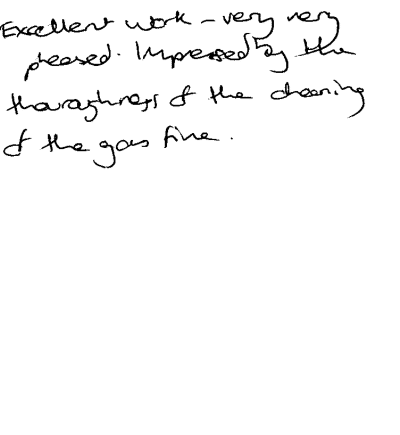 Excellent work - very very
pleased. Impressed by the
thoroughness of the cleaning
of the gas fire.